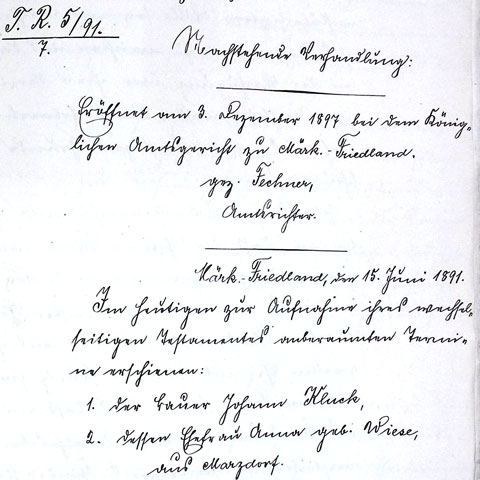 T. R. 5/91.
7.
Nachstehende Verhandlung:
Eröffnet am 3. Dezember 1897 bei dem König-
lichen Amtsgericht zu Märk.-Friedland.
gez. Fechner,
Amtsrichter.
Märk.-Friedland, den 15. Juni 1891.
Im heutigen zur Aufnahme ihres wechsel-
seitigen Testamentes anberaumten Termi-
ne erschienen:
1. der Bauer Johann Kluck,
2. dessen Ehefrau Anna geb. Wiese,
aus Marzdorf.